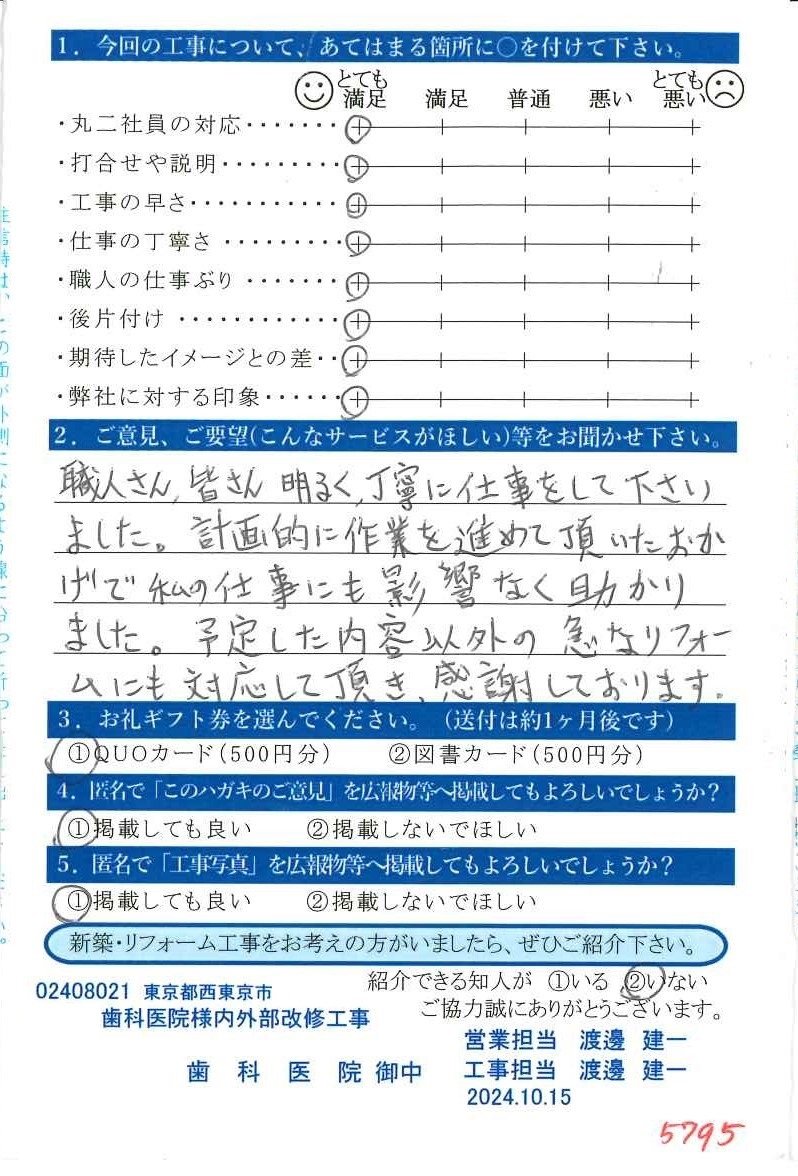 1．今回の工事について、あてはまる箇所に○を付けて下さい。
とても満足 満足 普通 悪い とても悪い
・丸二社員の対応・・・・・・・
・打合せや説明・・・・・・・・・
・工事の早さ・・・・・・・・・・・
・仕事の丁寧さ・・・・・・・・・
・職人の仕事ぶり・・・・・・・
・後片付け・・・・・・・・・・・・
・期待したイメージとの差・・
・弊社に対する印象・・・・・・
2．ご意見、ご要望(こんなサービスがほしい)等をお聞かせ下さい。
職人さん、皆さん 明るく、丁寧に仕事をして下さい
ました。計画的に作業を進めて頂いたおか
げで私の仕事にも影響なく助かり
ました。予定した内容以外の急なリフォー
ムにも対応して頂き、感謝しております。
3．お礼ギフト券を選んでください。（送付は約1ヶ月後です）
①QUOカード(500円分) ②図書カード(500円分)
4．匿名で「このハガキのご意見」を広報物等へ掲載してもよろしいでしょうか？
①掲載しても良い ②掲載しないでほしい
5．匿名で「工事写真」を広報物等へ掲載してもよろしいでしょうか？
①掲載しても良い ②掲載しないでほしい
新築・リフォーム工事をお考えの方がいましたら、ぜひご紹介下さい。
紹介できる知人が ①いる ②いない
ご協力誠にありがとうございます。
02408021 東京都西東京市
歯科医院様内外部改修工事
歯科医院御中
営業担当 渡邊 建一
工事担当 渡邊 建一
2024.10.15
5795